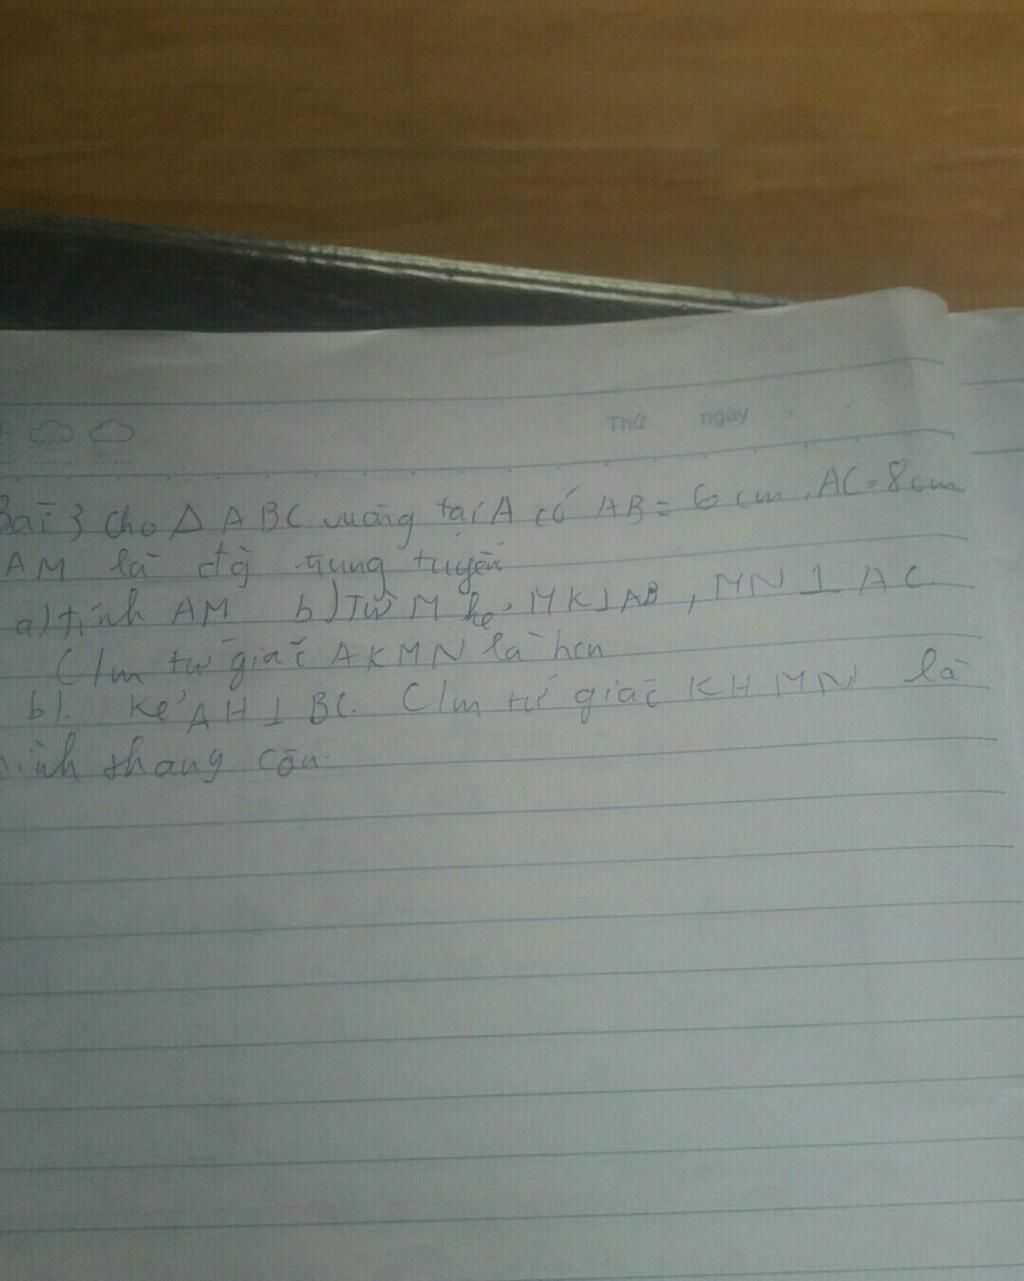 Thứ ngày
Bài 3 Cho Δ ABC vuông tại A có AB = 6 cm, AC = 8 cm
AM là đg trung tuyến
a) tính AM b) Từ M kẻ MK⊥AB, MN ⊥ AC
C/m tứ giác AKMN là hcn
b). Kẻ AH ⊥ BC. C/m tứ giác KHMN là
hình thang cân.